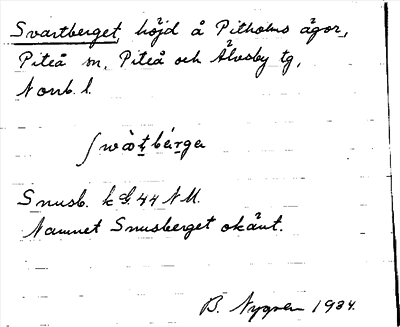 Svartberget, höjd å Pitholms ägor,
Piteå sn, Piteå och Älvsby tg,
Norrb. l.
Snusb. kbl. 44 NM.
Namnet Snusberget okänt.
B. Nygren 1934.